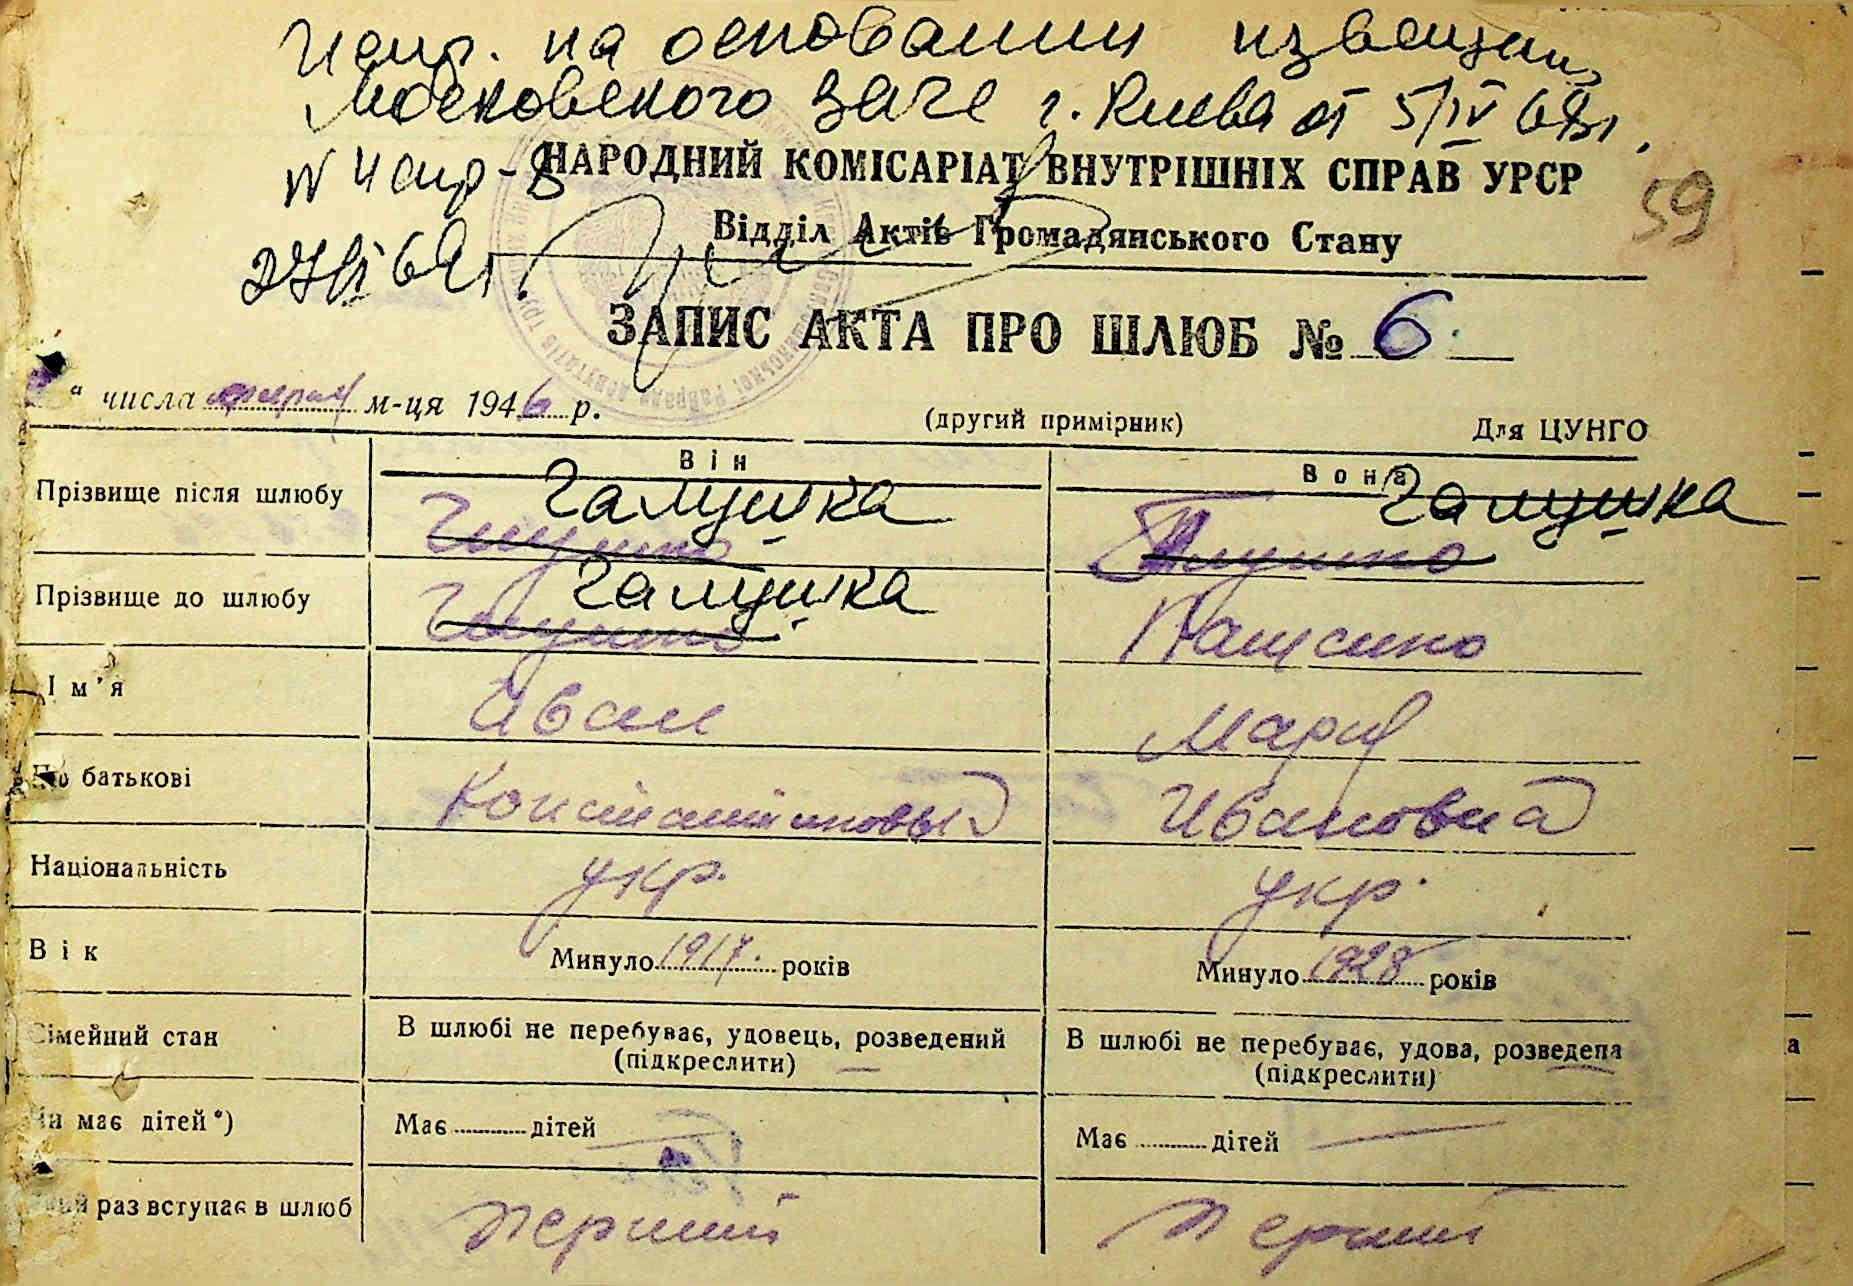 Испр. на основании извещения
Московского Загс г. Киева от 5/IV 69г.
НАРОДНИЙ КОМІСАРІАТ ВНУТРІШНІХ СПРАВ УРСР
59
Відділ Актів Громадянського Стану
ЗАПИС АКТА ПРО ШЛЮБ № 6
" числа м-ця 1946 р.
(другий примірник)
Для ЦУНГО
Він Вона
Прізвище після шлюбу Галушка Галушка
Глушко Глушко
Прізвище до шлюбу Галушка
Глушко Пащенко
Ім'я Иван Мария
По батькові Константинович Ивановна
Національність укр. укр.
Вік Минуло 1917. років Минуло 1928 років
Сімейний стан В шлюбі не перебуває, удовець, розведений В шлюбі не перебуває, удова, розведена
(підкреслити) (підкреслити)
Чи має дітей*) Має дітей Має дітей
раз вступає в шлюб Перший Перший